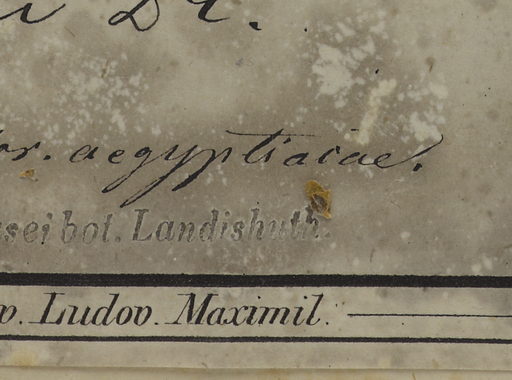 Dr.
or. aegyptiacae.
sei bot. Landishuth.
v. Ludov. Maximil.